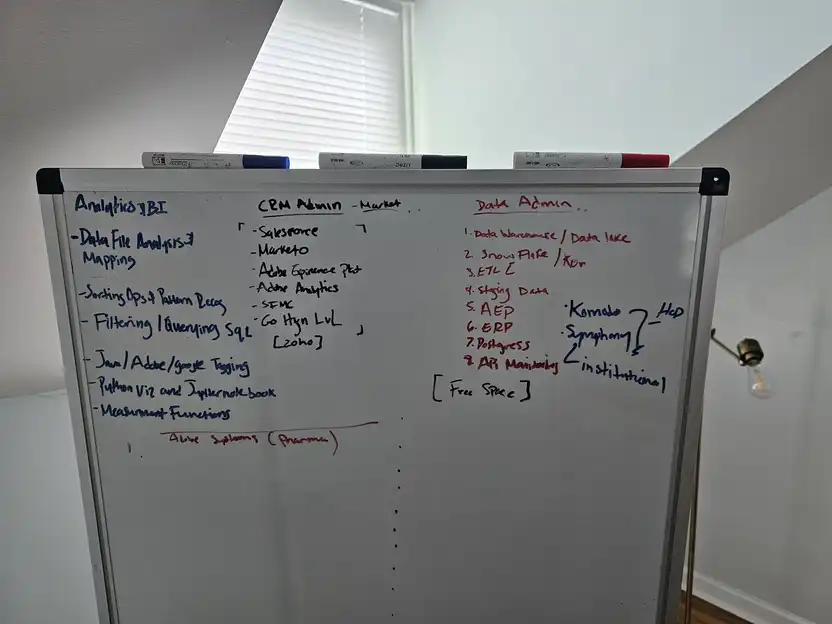 Analytics & BI
- Data File Analysis &
Mapping
- Sorting Ops & Pattern Recog
- Filtering / Querying SQL
- Java/Adobe/google Tagging
- Python Viz and Jupyter notebook
- Measurment Functions
CRM Admin - Market..
- Salesforce
- Marketo
- Adobe Experience Plat
- Adobe Analytics
- SFMC
- Go Hgn LvL
[Zoho]
Data Admin..
1. Data Warehouse / Data lake
2. Snow Flake /
3. ETL
4. Staging Data
5. AEP
6. ERP
7. Postgress
8. API Monitoring
[Free Space]
· Komodo
· Symphony
Hcp
institutional
1.
(Pharma)